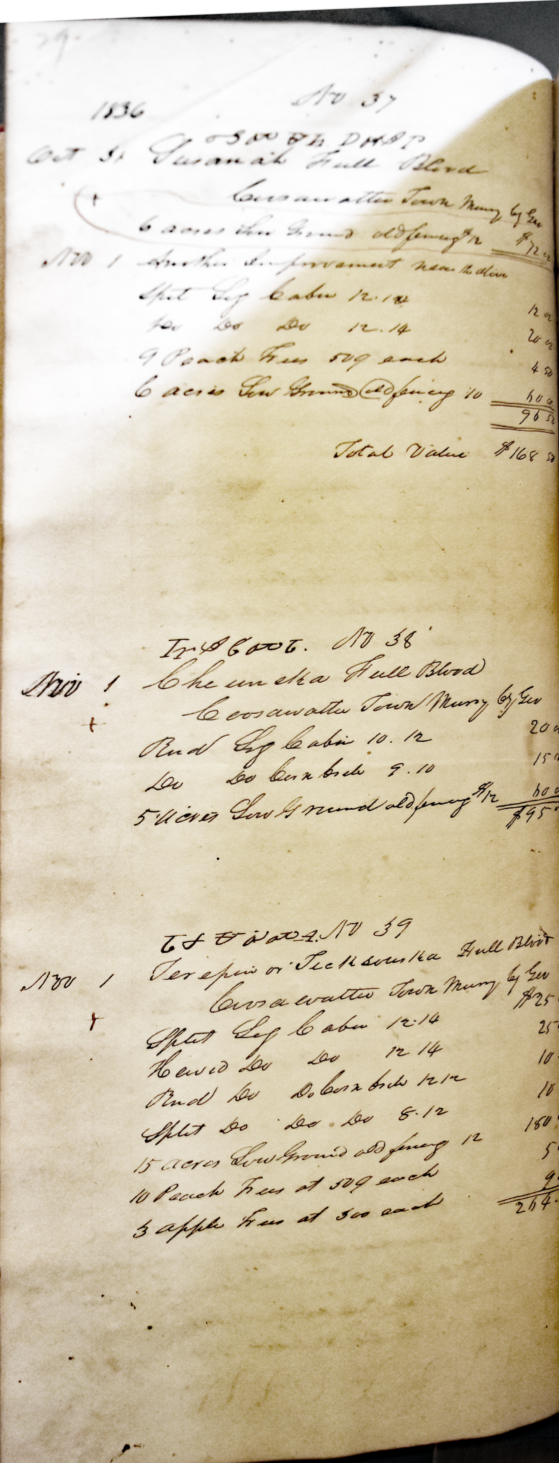 29
1836 No 37
Oct 31 Susanah Full Blood
Coosawattee Town Murry Cy Geo
6 acres Low Ground old fencing $12 $72
Nov 1 Another Improvement near the above
Split Log Cabin 12.14 12
Do Do Do 12.14 20
9 Peach Trees 50¢ each 4 50
6 acres Low Ground old fencing 10 60
96 5
Total Value $168 50
No 38
Nov 1 Cheuneka Full Blood
+ Coosawattee Town Murry Cy Geo
Rnd Log Cabin 10.12 20
Do Do Corn Crib 9.10 15
5 acres Low Ground old fencing $12 60
$95
No 39
Nov 1 Terepin or Full Blood
+ Coosawattee Town Murry Cy Geo
Split Log Cabin 12.14 $25
Hewed Do Do 12 14 25
Rnd Do Do Corn Crib 12 12 10
Split Do Do Do 8.12 10
15 acres Low Ground old fencing 12 180
10 Peach Trees at 50¢ each 5
3 apple Trees at 300 each 9
264